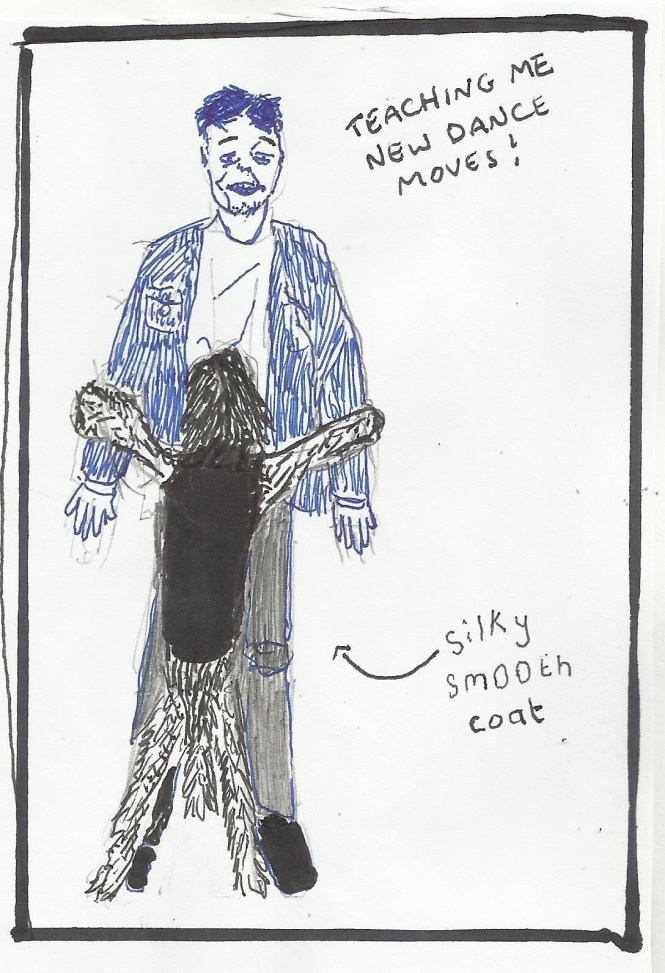 TEACHING ME
NEW DANCE
MOVES!
silky
smooth
coat